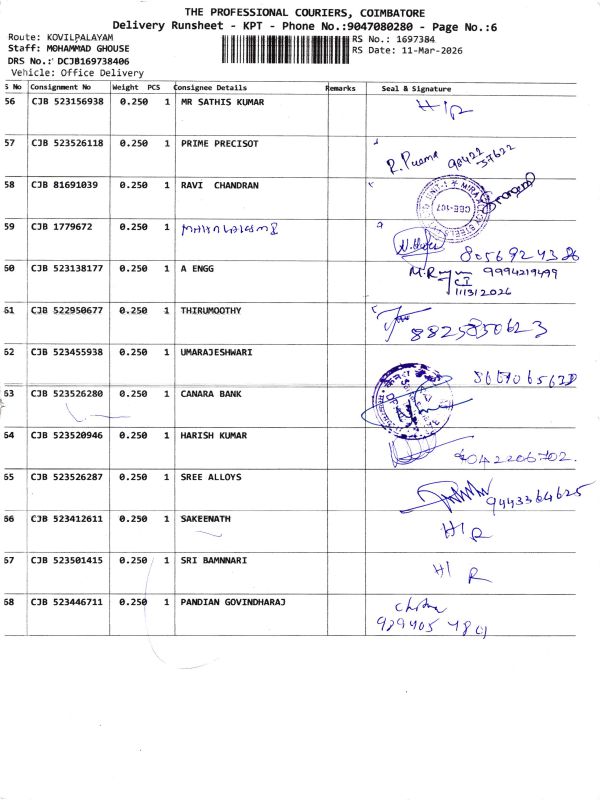 THE PROFESSIONAL COURIERS, COIMBATORE
Delivery Runsheet - KPT - Phone No.:9047080280 - Page No.:6
Route: KOVILPALAYAM
Staff: MOHAMMAD GHOUSE
DRS No.: DCJB169738406
Vehicle: Office Delivery
RS No.: 1697384
RS Date: 11-Mar-2026
S No Consignment No Weight PCS Consignee Details Remarks Seal & Signature
56 CJB 523156938 0.250 1 MR SATHIS KUMAR H/R
57 CJB 523526118 0.250 1 PRIME PRECISOT R. Puema 98422 37622
58 CJB 81691039 0.250 1 RAVI CHANDRAN UNIT-1 CBE-107
59 CJB 1779672 0.250 1 8056924386
60 CJB 523138177 0.250 1 A ENGG 9994219499
11/3/2026
61 CJB 522950677 0.250 1 THIRUMOOTHY 8825850623
62 CJB 523455938 0.250 1 UMARAJESHWARI
63 CJB 523526280 0.250 1 CANARA BANK
64 CJB 523520946 0.250 1 HARISH KUMAR 9042206702.
65 CJB 523526287 0.250 1 SREE ALLOYS 9443364625
66 CJB 523412611 0.250 1 SAKEENATH H/R
67 CJB 523501415 0.250 1 SRI BAMNNARI H/R
68 CJB 523446711 0.250 1 PANDIAN GOVINDHARAJ